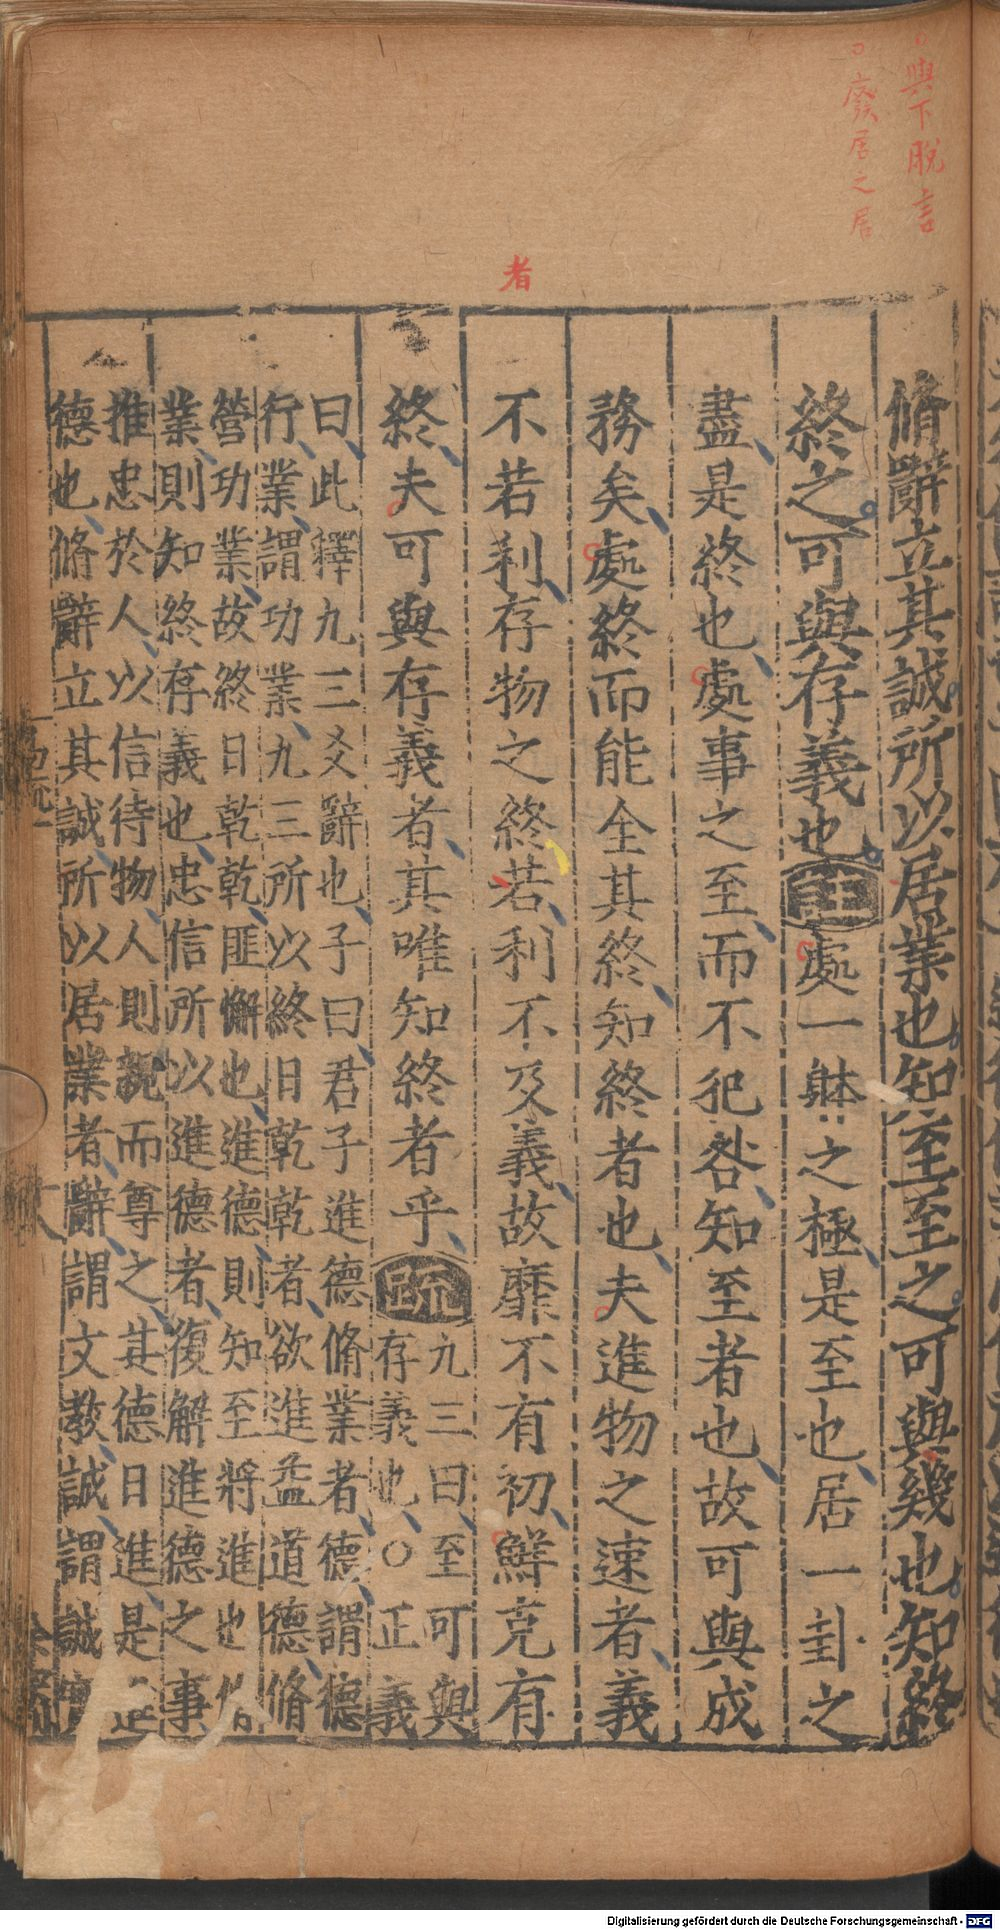 ○與下脫言
○廢居之居
者
脩辭立其誠所以居業也知至至之可與幾也知終
終之可與存義也註處一體之極是至也居一卦之
盡是終也處事之至而不犯咎知至者也故可與成
務矣處終而能全其終知終者也夫進物之速者義
不若利存物之終若利不及義故靡不有初鮮克有
終夫可與存義者其唯知終者乎疏
九三曰至可與
存義也○正義
曰此釋九三爻辭也子曰君子進德脩業者德謂德
行業謂功業九三所以終日乾乾者欲進益道德脩
營功業故終日乾乾匪懈也進德則知至將進也脩
業則知終存義也忠信所以進德者復解進德之事
推忠於人以信待物人則親而尊之其德日進是進
德也脩辭立其誠所以居業者辭謂文教誠謂誠實
Digitalisierung gefördert durch die Deutsche Forschungsgemeinschaft - DFG